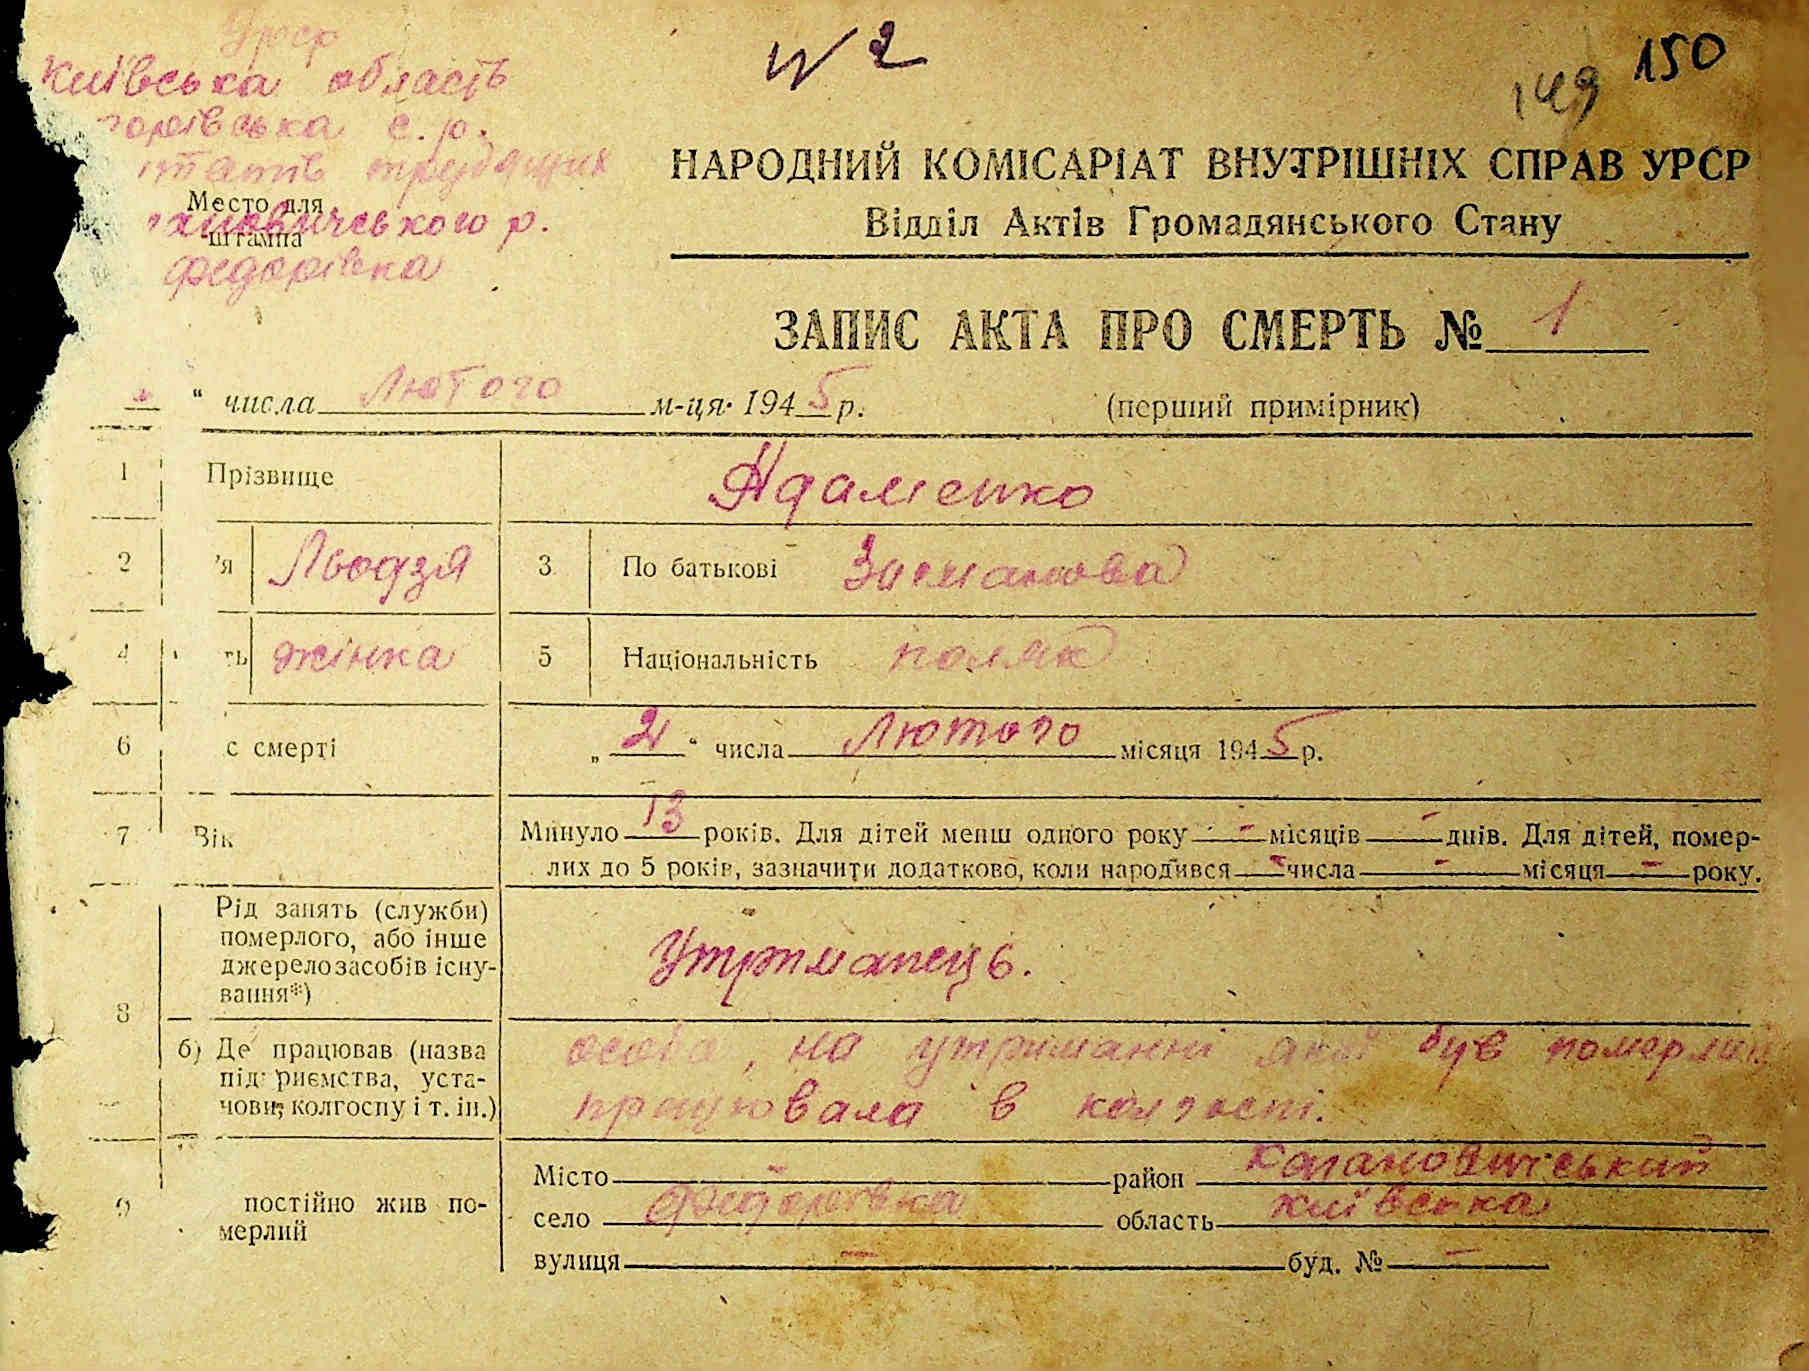 УРСР
№ 2
149 150
Київська область
с. р.
трудящих
Место для
штампа
р.
Федорівка
НАРОДНИЙ КОМІСАРІАТ ВНУТРІШНІХ СПРАВ УРСР
Відділ Актів Громадянського Стану
ЗАПИС АКТА ПРО СМЕРТЬ № 1
“ числа Лютого м-ця 1945 р. (перший примірник)
1 Прізвище Адаменко
2 ’я Льодзя 3 По батькові
4 ть жінка 5 Національність поляк
6 с смерті „ 2 “ числа Лютого місяця 1945 р.
7 Вік Минуло 13 років. Для дітей менш одного року - місяців - днів. Для дітей, помер-
лих до 5 років, зазначити додатково, коли народився - числа - місяця - року.
8 Рід занять (служби)
померлого, або інше
джерело засобів існу-
вання*)
Утриманець.
б) Де працював (назва
підприємства, уста-
нови, колгоспу і т. ін.)
особа, на утриманні якої був померлий
працювала в колгоспі.
9 постійно жив по-
мерлий
Місто - район Кагановичський
село Федорівка область Київська
вулиця - буд. № -